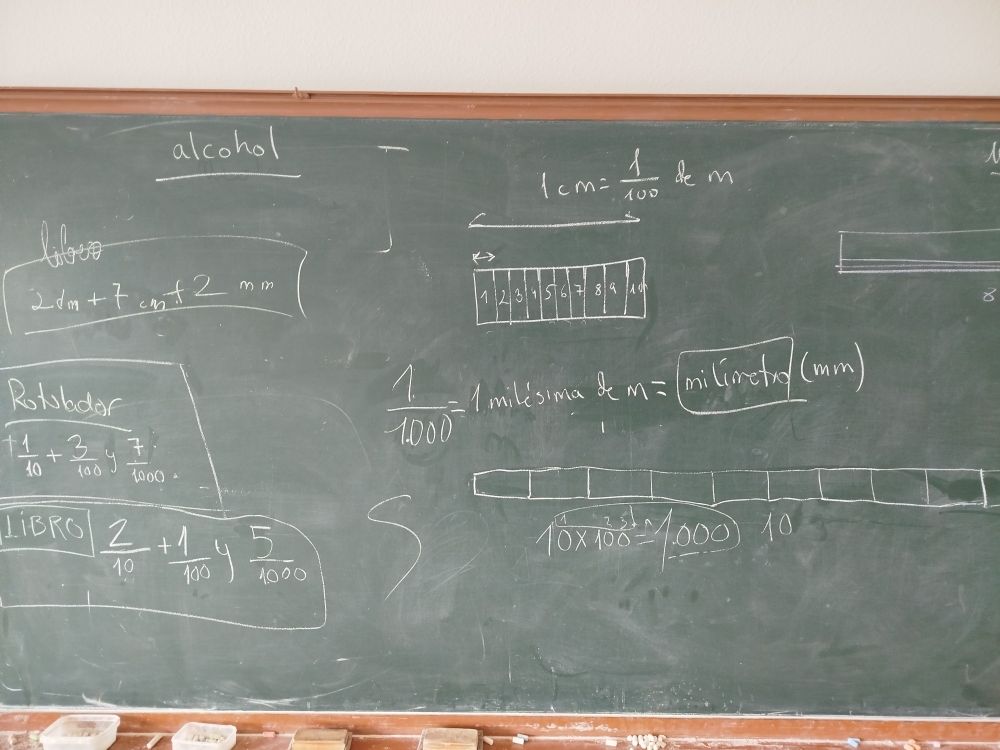 alcohol
libro
2 dm + 7 cm + 2 mm
Rotulador
+ 1/10 + 3/100 y 7/1000.
LIBRO 2/10 + 1/100 y 5/1000
1 cm = 1/100 de m
1 2 3 4 5 6 7 8 9 10
1/1.000 = 1 milésima de m = milímetro (mm)
10x100 = 1.000 10
8